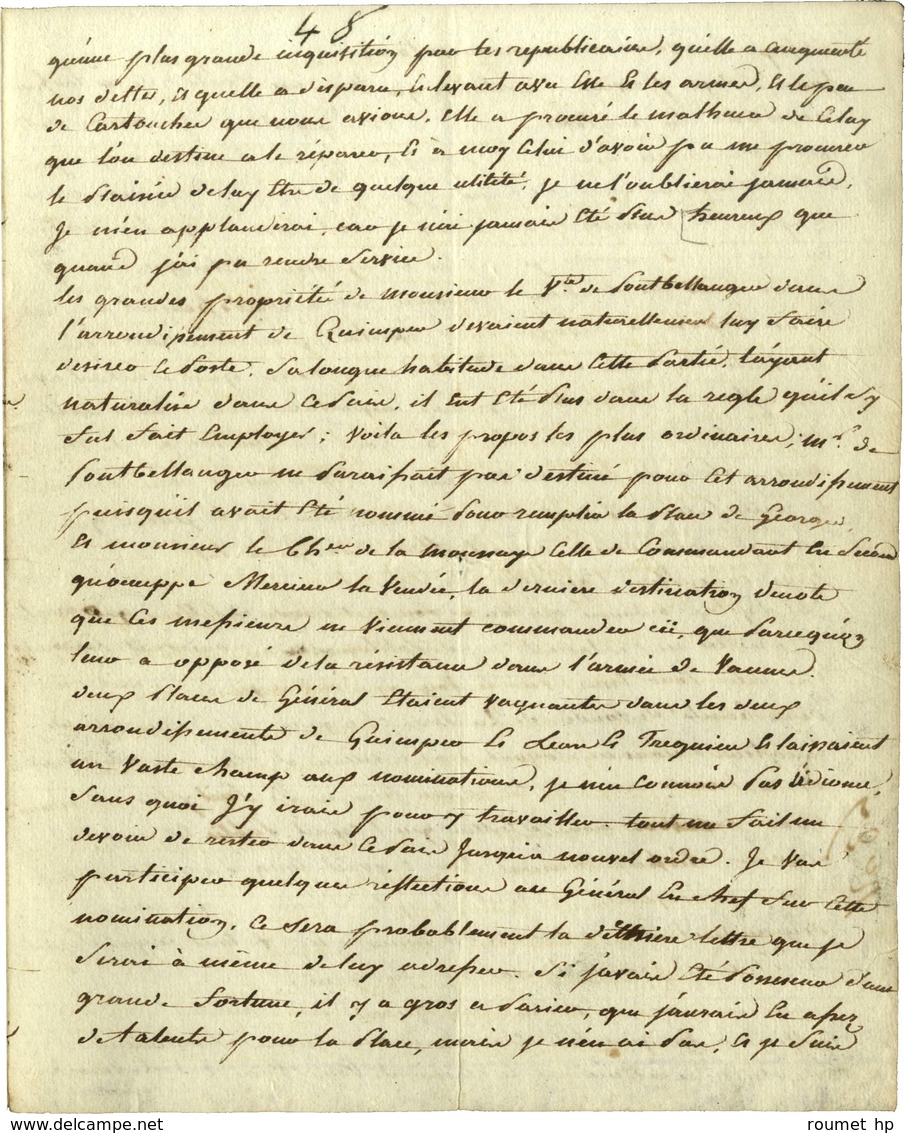 48
qu'une plus grande inquisition par les republicains, qu'elle a augmenté
nos dettes, et quelle a disparu, enlevant avec elle et les armes, et le peu
de Cartouches que nous avions. elle a procuré le malheur de Celuy
que l'on destine a le réparer, et a moy Celui d'avoir pu me procurer
le plaisir de luy Etre de quelque utilité, je ne l'oublierai jamais,
Je m'en applaudirai, car je n'ai jamais Eté plus heureux que
quand j'ai pu rendre service.
les grandes propriétés de monsieur le Vte de pontbellanger dans
l'arrondissement de Quimper devaient naturellement luy faire
desirer ce poste. Sa longue habitude dans cette partie, l'ayant
naturalisé dans ce pais, il eut Eté plus dans la regle qu'il s'y
fut fait Employer; voila les propos les plus ordinaires; mr. de
pontbellanger ne paraissait pas destiné pour cet arrondissement
puisqu'il avait Eté nommé pour remplir la place de Georges,
et monsieur le Chier de la moussaye Celle de Commandant En second
qu'occuppe Mercier la vendée, la derniere destination denote
que Ces messieurs ne viennent commander ici, que parcequ'on
leur a opposé de la résistance dans l'armée de Vannes.
deux places de Général Etaient vaquantes dans les deux
arrondissements de Quimper et Leon et Treguier et laissaient
un vaste champ aux nominations, je n'en connois pas l'idiome,
sans quoi j'y irais pour y travailler. tout me fait un
devoir de rester dans ce pais jusqu'a nouvel ordre. Je vais
participer quelques réflections au Général En chef sur cette
nomination, ce sera probablement la dernière lettre que je
serai à même de luy adresser. Si j'avais Eté possesseur d'une
grande fortune, il y a gros a parier, que j'aurais Eu assez
de talents pour la place, mais je n'en ai pas, et je suis
roumet hp